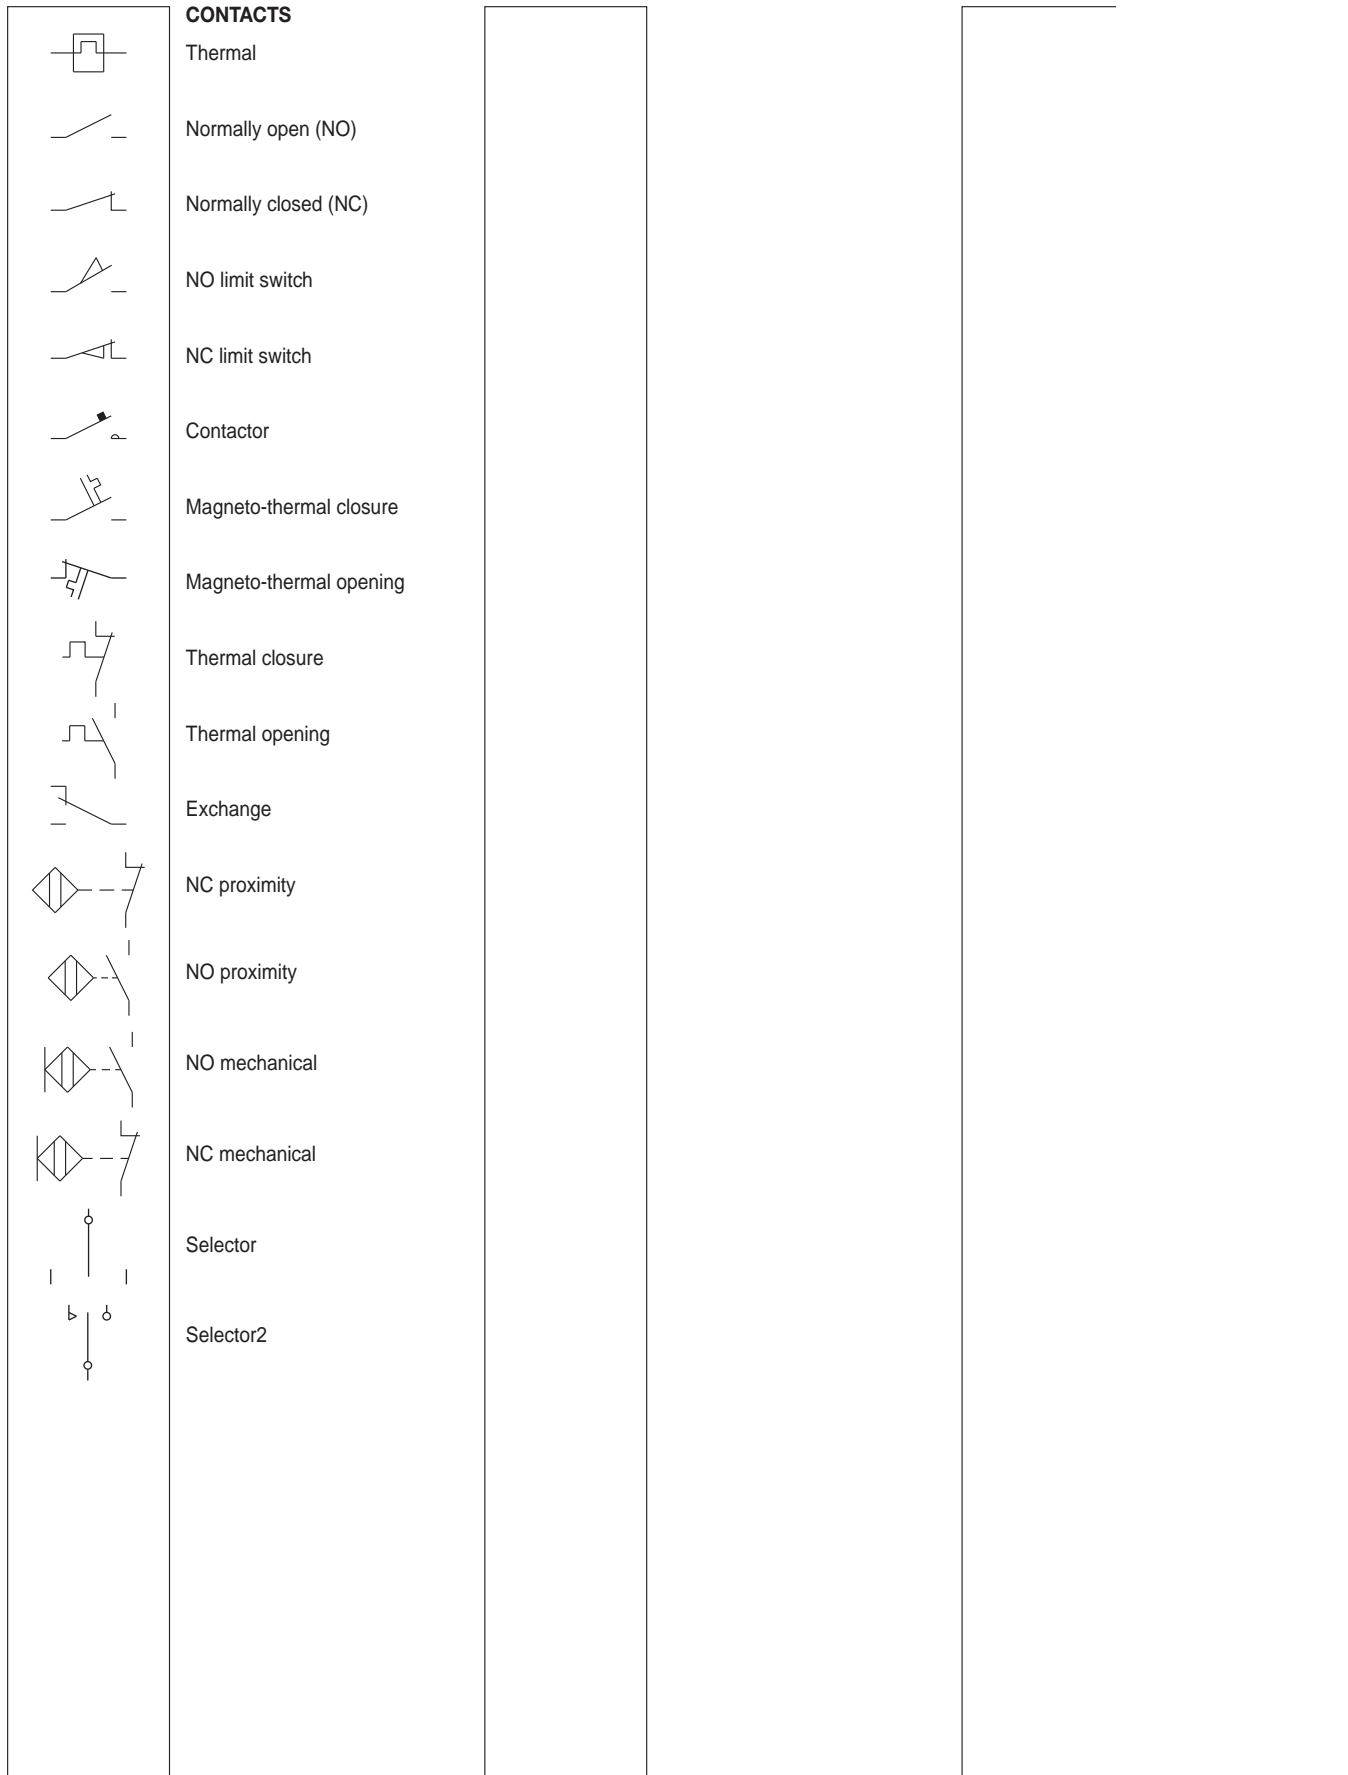 CONTACTS
Thermal
Normally open (NO)
Normally closed (NC)
NO limit switch
NC limit switch
Contactor
Magneto-thermal closure
Magneto-thermal opening
Thermal closure
Thermal opening
Exchange
NC proximity
NO proximity
NO mechanical
NC mechanical
Selector
Selector2